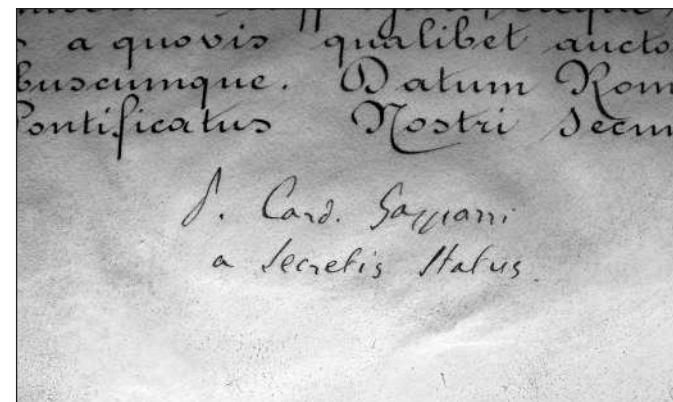 a quovis qualibet aucto
buscumque. Datum Rom
Pontificatus Nostri Secun
P. Card. Gasparri
a Secretis Status